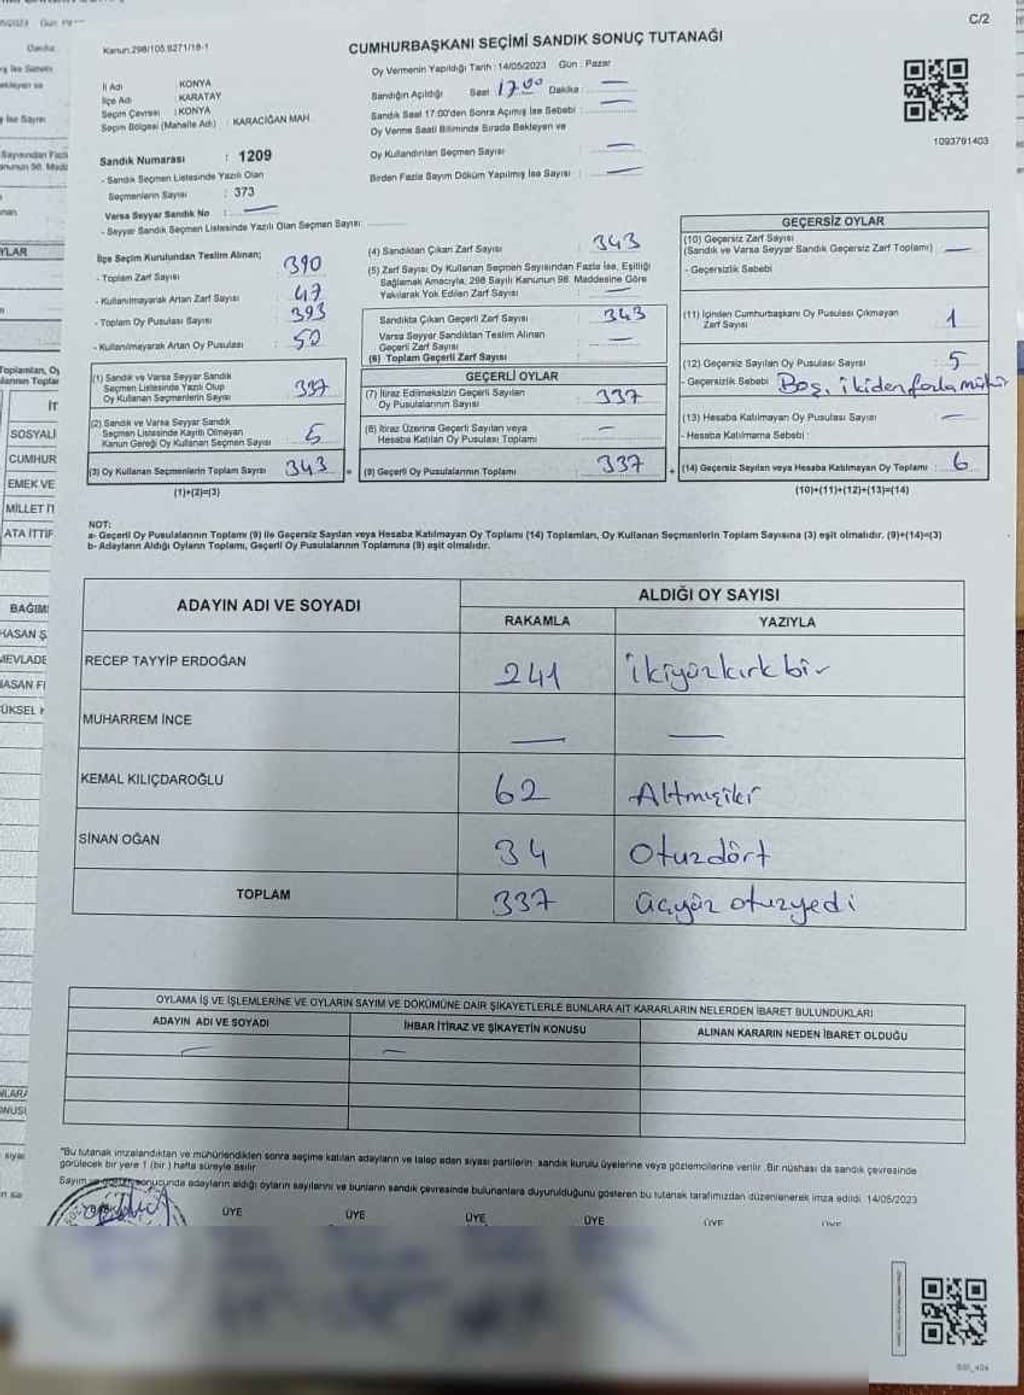 C/2
Kanun:298/105.6271/18-1
CUMHURBAŞKANI SEÇİMİ SANDIK SONUÇ TUTANAĞI
Oy Vermenin Yapıldığı Tarih : 14/05/2023 Gün : Pazar
İl Adı : KONYA
İlçe Adı : KARATAY
Seçim Çevresi : KONYA
Seçim Bölgesi (Mahalle Adı) : KARACİĞAN MAH
Sandığın Açıldığı Saat 17.00 Dakika : —
Sandık Saat 17:00'den Sonra Açımış İse Sebebi : —
Oy Verme Saati Bitiminde Sırada Bekleyen ve
Oy Kullandırılan Seçmen Sayısı : —
Birden Fazla Sayım Döküm Yapılmış İse Sayısı : —
1093791403
Sandık Numarası : 1209
- Sandık Seçmen Listesinde Yazılı Olan
Seçmenlerin Sayısı : 373
Varsa Seyyar Sandık No : —
- Seyyar Sandık Seçmen Listesinde Yazılı Olan Seçmen Sayısı:
İlçe Seçim Kurulundan Teslim Alınan;
- Toplam Zarf Sayısı : 390
- Kullanılmayarak Artan Zarf Sayısı : 47
- Toplam Oy Pusulası Sayısı : 393
- Kullanılmayarak Artan Oy Pusulası : 50
(1) Sandık ve Varsa Seyyar Sandık
Seçmen Listesinde Yazılı Olup
Oy Kullanan Seçmenlerin Sayısı 337
(2) Sandık ve Varsa Seyyar Sandık
Seçmen Listesinde Kayıtlı Olmayan
Kanun Gereği Oy Kullanan Seçmen Sayısı
(3) Oy Kullanan Seçmenlerin Toplam Sayısı 343 =
(1)+(2)=(3)
(4) Sandıktan Çıkan Zarf Sayısı 343
(5) Zarf Sayısı Oy Kullanan Seçmen Sayısından Fazla İse, Eşitliği
Sağlamak Amacıyla, 298 Sayılı Kanunun 98. Maddesine Göre
Yakılarak Yok Edilen Zarf Sayısı : —
Sandıkta Çıkan Geçerli Zarf Sayısı : 343
Varsa Seyyar Sandıktan Teslim Alınan
Geçerli Zarf Sayısı : —
(6) Toplam Geçerli Zarf Sayısı :
GEÇERLİ OYLAR
(7) İtiraz Edilmeksizin Geçerli Sayılan
Oy Pusulalarının Sayısı : 337
(8) İtiraz Üzerine Geçerli Sayılan veya
Hesaba Katılan Oy Pusulası Toplamı : —
(9) Geçerli Oy Pusulalarının Toplamı : 337 +
GEÇERSİZ OYLAR
(10) Geçersiz Zarf Sayısı
(Sandık ve Varsa Seyyar Sandık Geçersiz Zarf Toplamı) : —
- Geçersizlik Sebebi :
(11) İçinden Cumhurbaşkanı Oy Pusulası Çıkmayan
Zarf Sayısı : 1
(12) Geçersiz Sayılan Oy Pusulası Sayısı : 5
- Geçersizlik Sebebi : Boş, ikiden fazla mühür
(13) Hesaba Katılmayan Oy Pusulası Sayısı : —
- Hesaba Katılmama Sebebi :
(14) Geçersiz Sayılan veya Hesaba Katılmayan Oy Toplamı : 6
(10)+(11)+(12)+(13)=(14)
NOT:
a- Geçerli Oy Pusulalarının Toplamı (9) ile Geçersiz Sayılan veya Hesaba Katılmayan Oy Toplamı (14) Toplamları, Oy Kullanan Seçmenlerin Toplam Sayısına (3) eşit olmalıdır. (9)+(14)=(3)
b- Adayların Aldığı Oyların Toplamı, Geçerli Oy Pusulalarının Toplamına (9) eşit olmalıdır.
ADAYIN ADI VE SOYADI ALDIĞI OY SAYISI
RAKAMLA YAZIYLA
RECEP TAYYİP ERDOĞAN 241 ikiyüzkırkbir
MUHARREM İNCE — —
KEMAL KILIÇDAROĞLU 62 Altmışiki
SİNAN OĞAN 34 Otuzdört
TOPLAM 337 üçyüz otuzyedi
OYLAMA İŞ VE İŞLEMLERİNE VE OYLARIN SAYIM VE DÖKÜMÜNE DAİR ŞİKAYETLERLE BUNLARA AİT KARARLARIN NELERDEN İBARET BULUNDUKLARI
ADAYIN ADI VE SOYADI İHBAR İTİRAZ VE ŞİKAYETİN KONUSU ALINAN KARARIN NEDEN İBARET OLDUĞU
"Bu tutanak imzalandıktan ve mühürlendikten sonra seçime katılan adayların ve talep eden siyasi partilerin sandık kurulu üyelerine veya gözlemcilerine verilir .Bir nüshası da sandık çevresinde
görülecek bir yere 1 (bir ) hafta süreyle asılır
Sayım ve sonucunda adayların aldığı oyların sayılarını ve bunların sandık çevresinde bulunanlara duyurulduğunu gösteren bu tutanak tarafımızdan düzenlenerek imza edildi. 14/05/2023
ÜYE ÜYE ÜYE ÜYE ÜYE ÜYE
SOSYALİ
CUMHUR
EMEK VE
MİLLET İT
ATA İTTİF
BAĞIMS
HASAN Ş
MEVLADE
HASAN Fİ